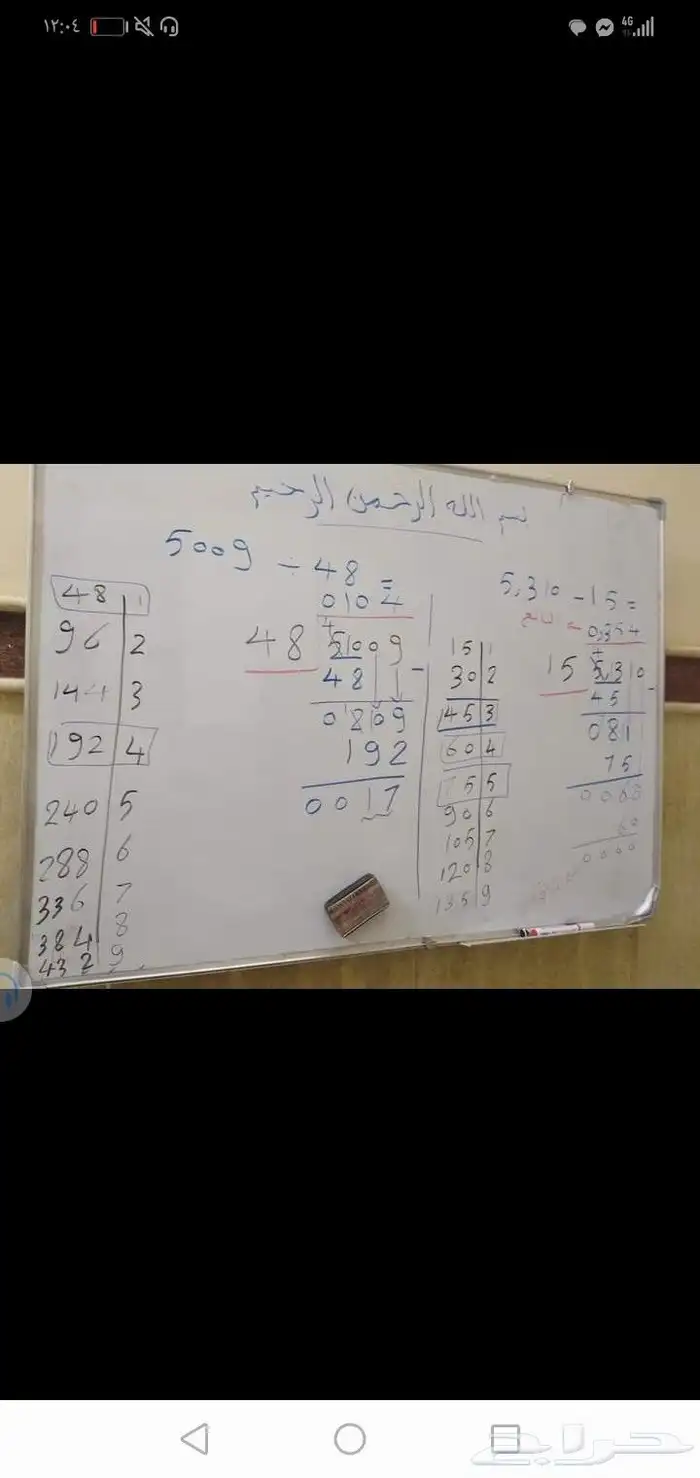 ١٢:٠٤
4G
بسم الله الرحمن الرحيم
5009 ÷ 48 =
0104
48 5009
48
0809
192
0017
48 1
96 2
144 3
192 4
240 5
288 6
336 7
384 8
432 9
5,310 ÷ 15 =
0,354
15 5,310
45
081
75
0060
60
0000
15 1
30 2
45 3
60 4
75 5
90 6
105 7
120 8
135 9
حراج